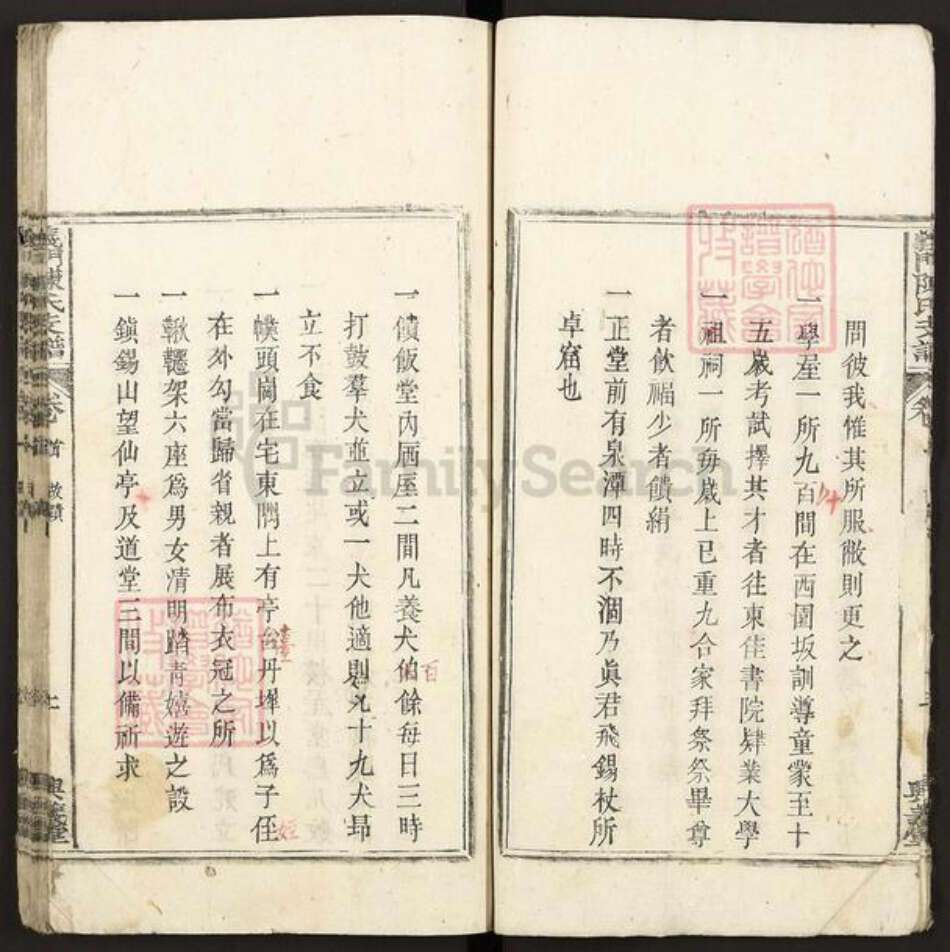 問彼我惟其所服敝則更之
一學屋一所九百間在西園坂訓導童蒙至十
五歲考試擇其才者往東佳書院肄業大學
一祖祠一所每歲上巳重九合家拜祭祭畢尊
者飲福少者饋絹
一正堂前有泉潭四時不涸乃眞君飛錫杖所
卓窟也
一饋飯堂內廼屋二間凡養犬伯餘每日三時
百
打鼓羣犬並立或一犬他適則九十九犬昂
立不食
一幞頭崗在宅東隅上有亭台丹墀以爲子侄
臺
姪
在外勾當歸省親者展布衣冠之所
一鞦韆架六座爲男女清明踏青嬉遊之設
一鎮錫山望仙亭及道堂三間以備祈求
義門陳氏支譜
卷首
故蹟
七
興義堂
義門陳氏支譜
卷
興義堂
FamilySearch